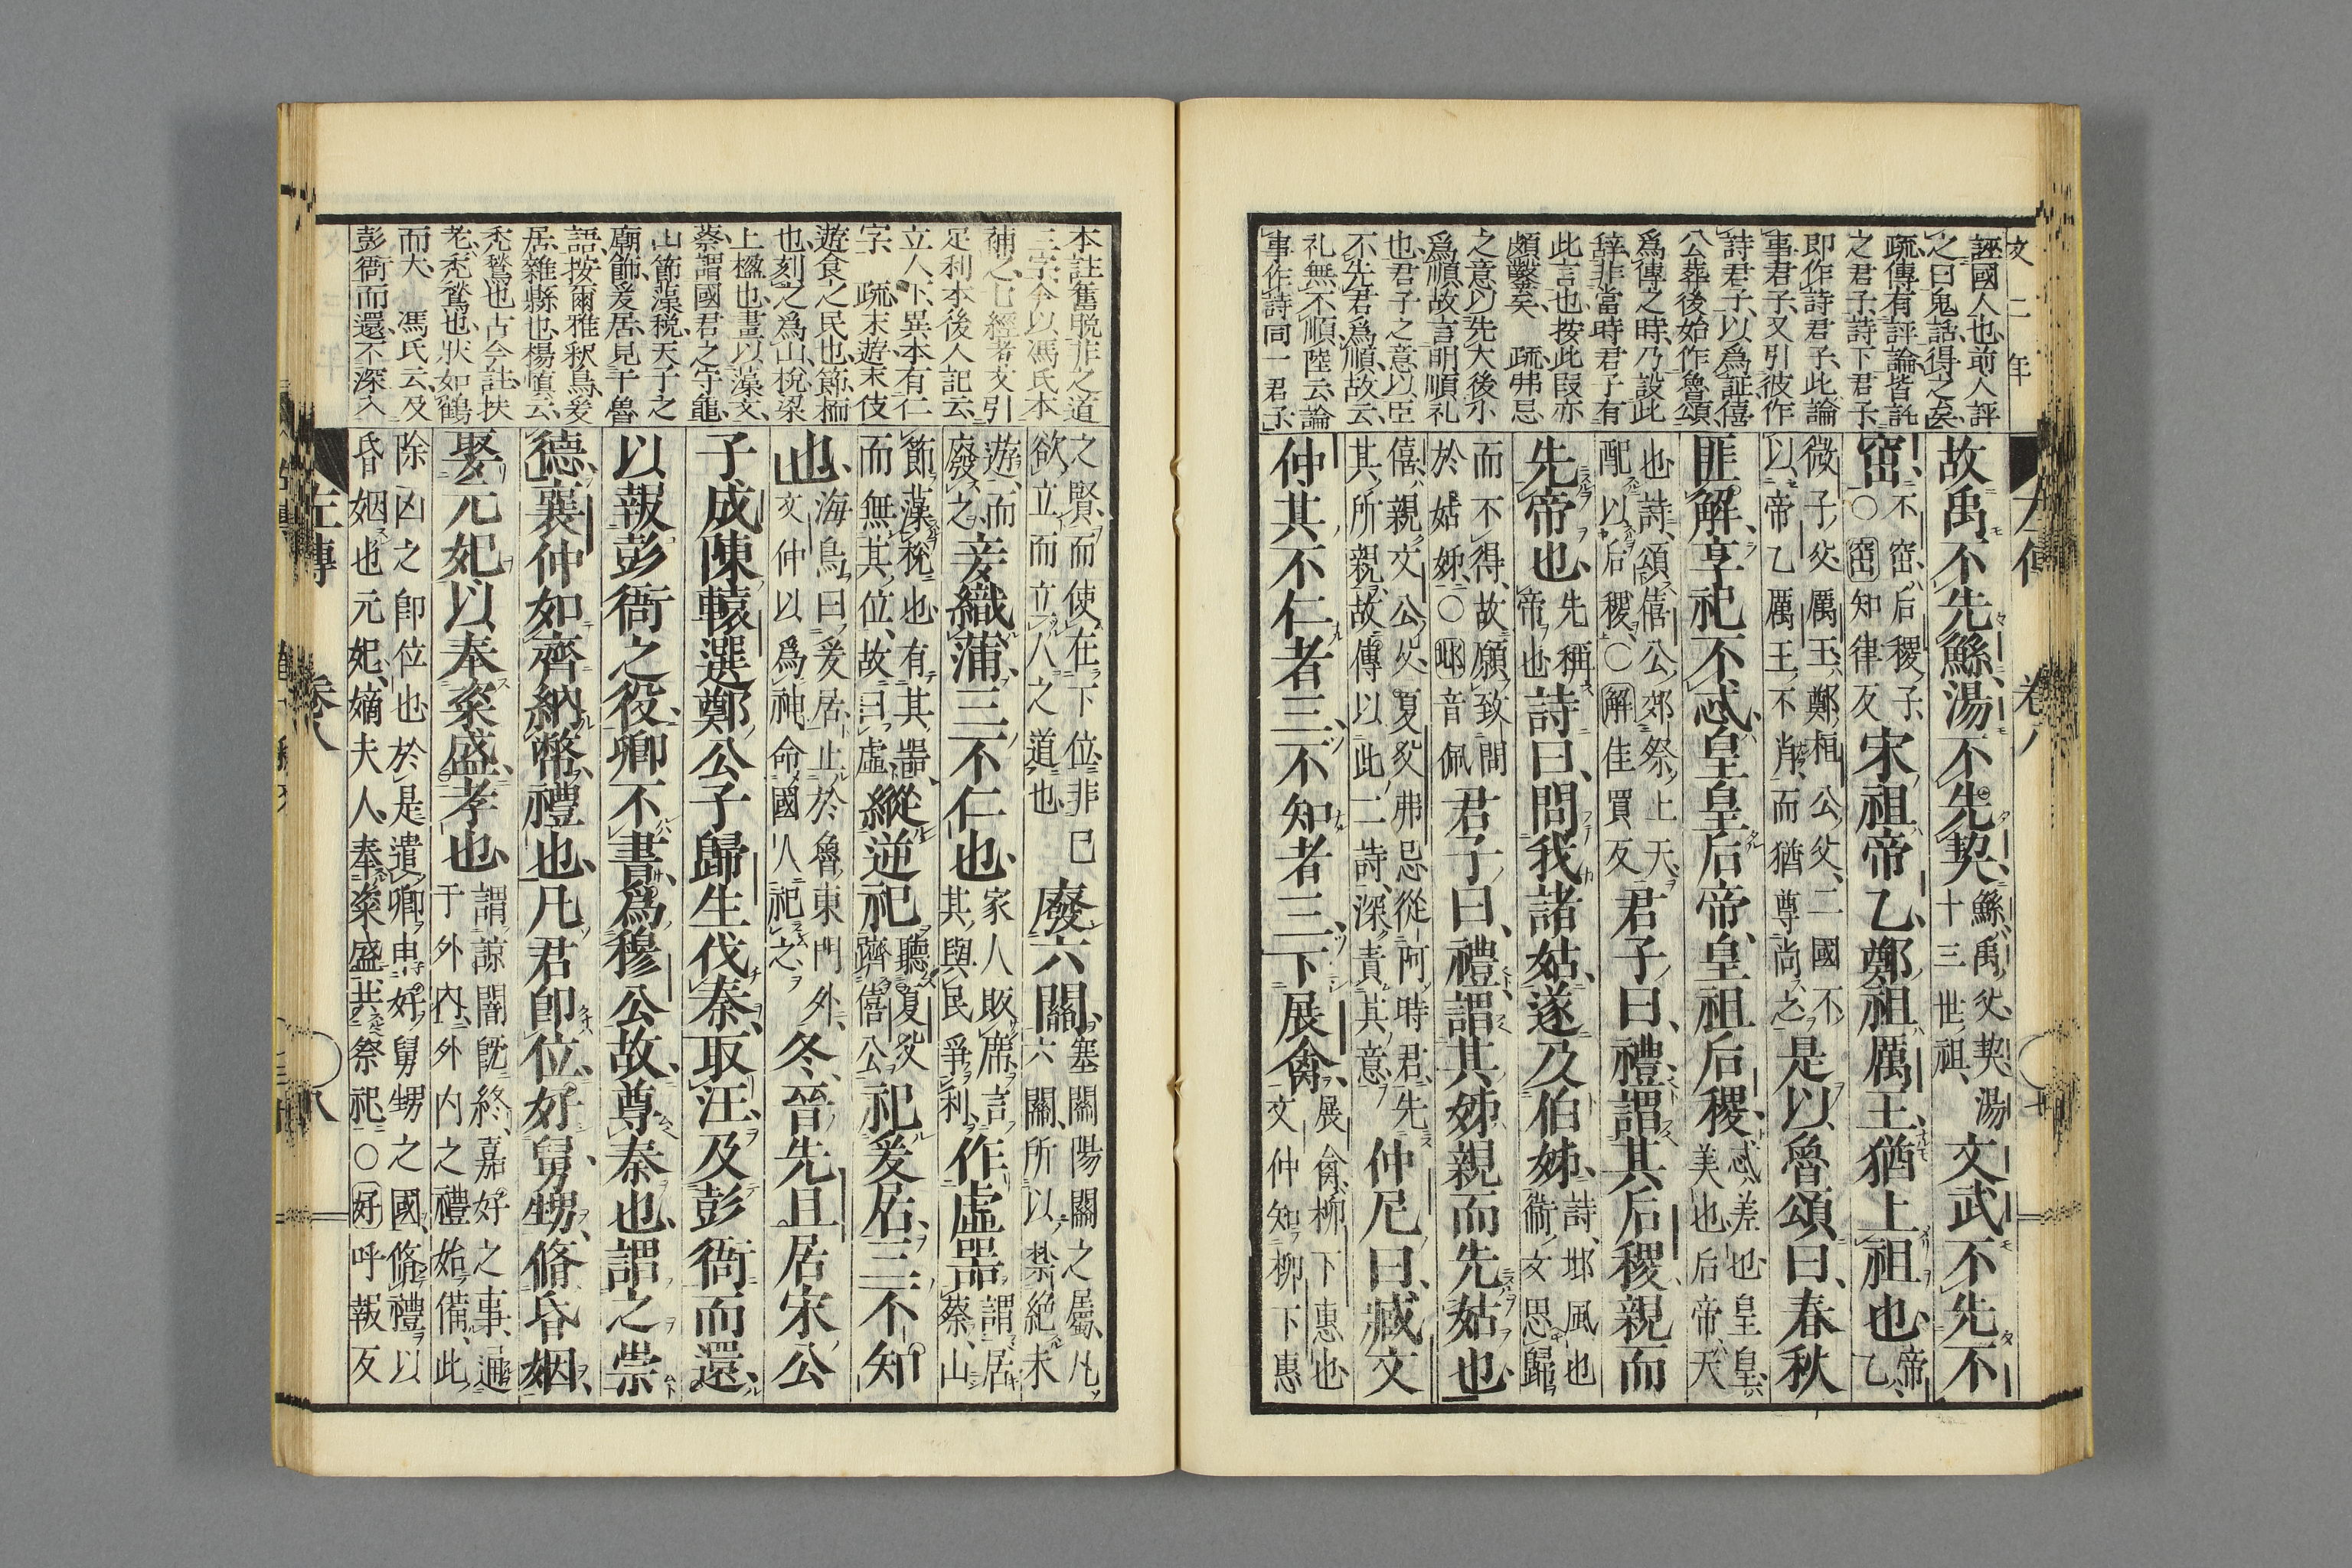 文二年
誣國人也前人評
之曰鬼話得之矣
疏傳有評論皆託
之君子詩下君子
即作詩君子此論
事君子又引彼作
詩君子以爲証僖
公葬後始作魯頌
爲傳之時乃設此
辞非當時君子有
此言也按此叚亦
頗鑿矣　疏弗忌
之意以先大後小
爲順故言明順礼
也君子之意以臣
不先君爲順故云
礼無不順陸云論
事作詩同一君子
故禹不先鯀湯不先契鯀禹父契湯十三世祖文武不先不
窋不窋后稷子○窋知律反宋祖帝乙鄭祖厲王猶上祖也帝乙
微子父厲王鄭桓公父二國不以帝乙厲王不肖而猶尊尚之是以魯頌曰春秋
匪解享祀不忒皇皇后帝皇祖后稷忒差也皇皇美也后帝天
也詩頌僖公郊祭上天配以后稷○解佳買反君子曰禮謂其后稷親而
先帝也先稱帝也詩曰問我諸姑遂及伯姊詩邶風也衞女思歸
而不得故願致問於姑姊○邶音佩君子曰禮謂其姊親而先姑也
僖親文公父夏父弗忌從阿時君先其所親故傳以此二詩深責其意仲尼曰臧文
仲其不仁者三不知者三下展禽展禽柳下惠也文仲知柳下惠
本註舊脱非之道
三字今以馮氏本
補之七經考文引
足利本後人記云
立人下異本有仁
字　疏末遊末伎
遊食之民也節栭
也刻之爲山棁梁
上楹也畫以藻文
蔡謂國君之守龜
山節藻棁天子之
廟飾爰居見于魯
語按爾雅釈鳥爰
居雜縣也楊慎云
禿鶖也古今註扶
老禿鶖也状如鶴
而大　馮氏云及
彭衙而還不深入
之賢而使在下位非已欲立而立人之道也廢六關塞關陽關之屬凡六關所以禁絶末
遊而廢之妾織蒲三不仁也家人販席言其與民爭利作虚噐謂居蔡山
節藻棁也有其噐而無其位故曰虚縱逆祀聽夏父躋僖公祀爰居三不知
也海鳥曰爰居止於魯東門外文仲以爲神命國人祀之冬晉先且居宋公
子成陳轅選鄭公子歸生伐秦取汪及彭衙而還
以報彭衙之役卿不書爲穆公故尊秦也謂之崇
德襄仲如齊納幣禮也凡君卽位好舅甥脩昏姻
娶元妃以奉粢盛孝也謂諒闇旣終嘉好之事通于外内外内之禮始備此
除凶之卽位也於是遣卿申好舅甥之國脩禮以昏姻也元妃嫡夫人奉粢盛共祭祀○好呼報反
左傳　卷八　八